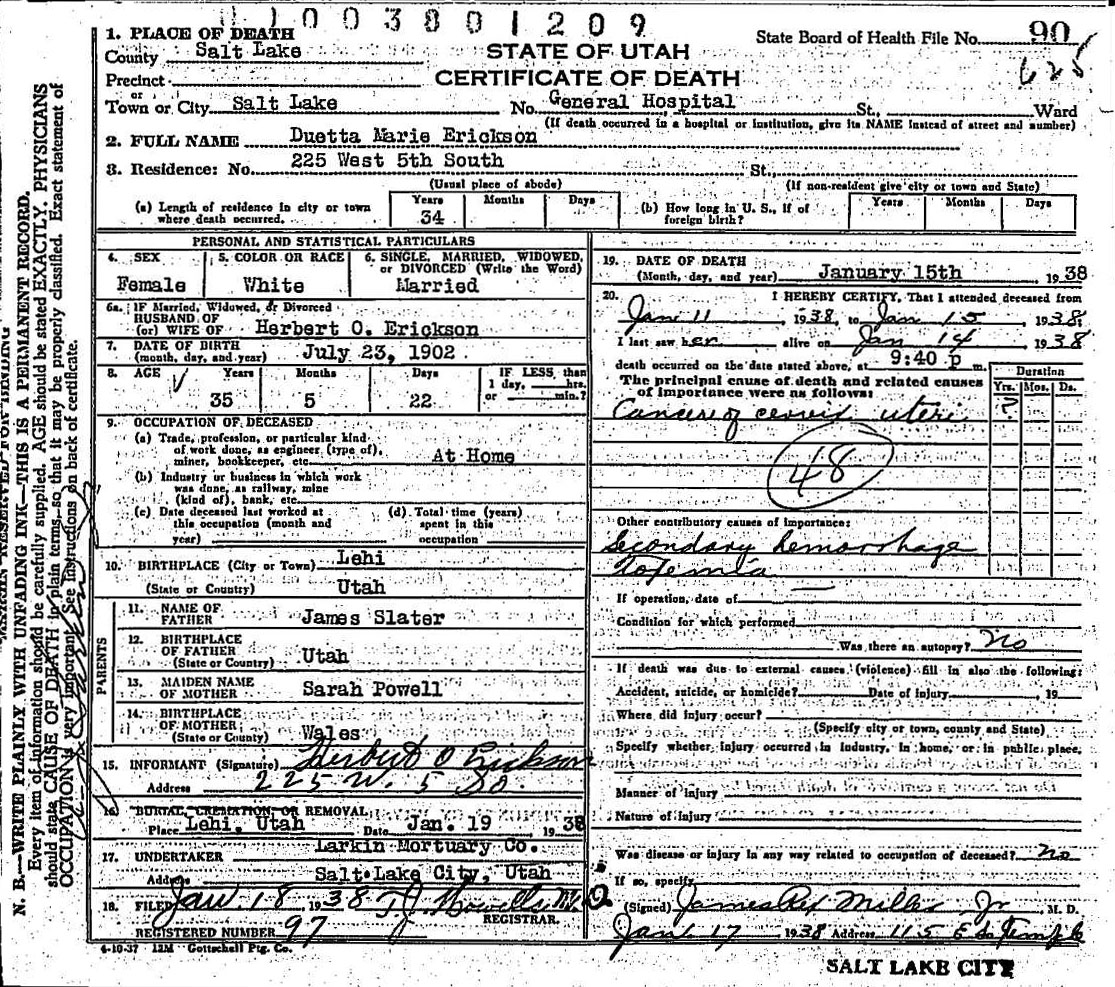 1003801209
1. PLACE OF DEATH
County Salt Lake
STATE OF UTAH
State Board of Health File No. 90
625
Precinct
CERTIFICATE OF DEATH
or
Town or City Salt Lake No. General Hospital St., Ward
(If death occurred in a hospital or institution, give its NAME instead of street and number)
2. FULL NAME Duetta Marie Erickson
3. Residence: No. 225 West 5th South St.,
(Usual place of abode) (If non-resident give city or town and State)
(a) Length of residence in city or town where death occurred. Years 34 Months Days
(b) How long in U. S., if of foreign birth? Years Months Days
PERSONAL AND STATISTICAL PARTICULARS
4. SEX Female
5. COLOR OR RACE White
6. SINGLE, MARRIED, WIDOWED, or DIVORCED (Write the Word) Married
6a. IF Married, Widowed, or Divorced
HUSBAND OF
(or) WIFE OF Herbert O. Erickson
7. DATE OF BIRTH
(month, day, and year) July 23, 1902
8. AGE Years 35 Months 5 Days 22 IF LESS than 1 day, hrs. or min.?
9. OCCUPATION OF DECEASED
(a) Trade, profession, or particular kind
of work done, as engineer (type of),
miner, bookkeeper, etc. At Home
(b) Industry or business in which work
was done, as railway, mine
(kind of), bank, etc.
(c) Date deceased last worked at
this occupation (month and
year)
(d) Total time (years)
spent in this
occupation
10. BIRTHPLACE (City or Town) Lehi
(State or Country) Utah
PARENTS
11. NAME OF
FATHER James Slater
12. BIRTHPLACE
OF FATHER
(State or Country) Utah
13. MAIDEN NAME
OF MOTHER Sarah Powell
14. BIRTHPLACE
OF MOTHER
(State or Country) Wales
15. INFORMANT (Signature) Herbert O Erickson
Address 225 W. 5 So.
16. BURIAL, CREMATION, OR REMOVAL
Place Lehi, Utah Date Jan. 19 1938
17. UNDERTAKER Larkin Mortuary Co.
Address Salt Lake City, Utah
18. FILED Jan 18 1938 T.J. Howells, M.D.
REGISTRAR.
REGISTERED NUMBER 97
4-10-37 12M Gottschall Ptg. Co.
19. DATE OF DEATH
(Month, day, and year) January 15th 1938
20. I HEREBY CERTIFY, That I attended deceased from
Jan 11, 1938, to Jan 15, 1938
I last saw her alive on Jan 14 1938
death occurred on the date stated above, at 9:40 p m.
The principal cause of death and related causes
of importance were as follows:
Duration
Yrs. Mos. Ds.
Cancer of cervix uteri
48
Other contributory causes of importance:
Secondary hemorrhage
Toxemia
If operation, date of
Condition for which performed
Was there an autopsy? No
If death was due to external causes (violence) fill in also the following:
Accident, suicide, or homicide? Date of injury 19
Where did injury occur?
(Specify city or town, county and State)
Specify whether injury occurred in industry, in home, or in public place,
Manner of injury
Nature of injury
Was disease or injury in any way related to occupation of deceased? no
If so, specify
(Signed) James Rex Miller Jr M. D.
Jan 17 1938 Address 115 E So Temple
SALT LAKE CITY
N. B.—WRITE PLAINLY WITH UNFADING INK—THIS IS A PERMANENT RECORD.
Every item of information should be carefully supplied. AGE should be stated EXACTLY. PHYSICIANS
should state CAUSE OF DEATH in plain terms, so that it may be properly classified. Exact statement of
OCCUPATION is very important. See instructions on back of certificate.